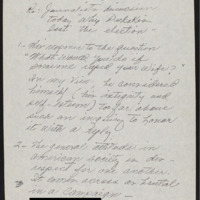 Re: Journalists discussion
today why Dukakis
lost the election
1- His response to the question
"What would you do if
someone raped your wife?"
in my view he considered
himself (his integrity and
self-esteem) too far above
such an inquiry to honor
it with a reply
2- The general attitude in
American society is dis-
respect for one another.
It comes across as hateful
in a Campaign —